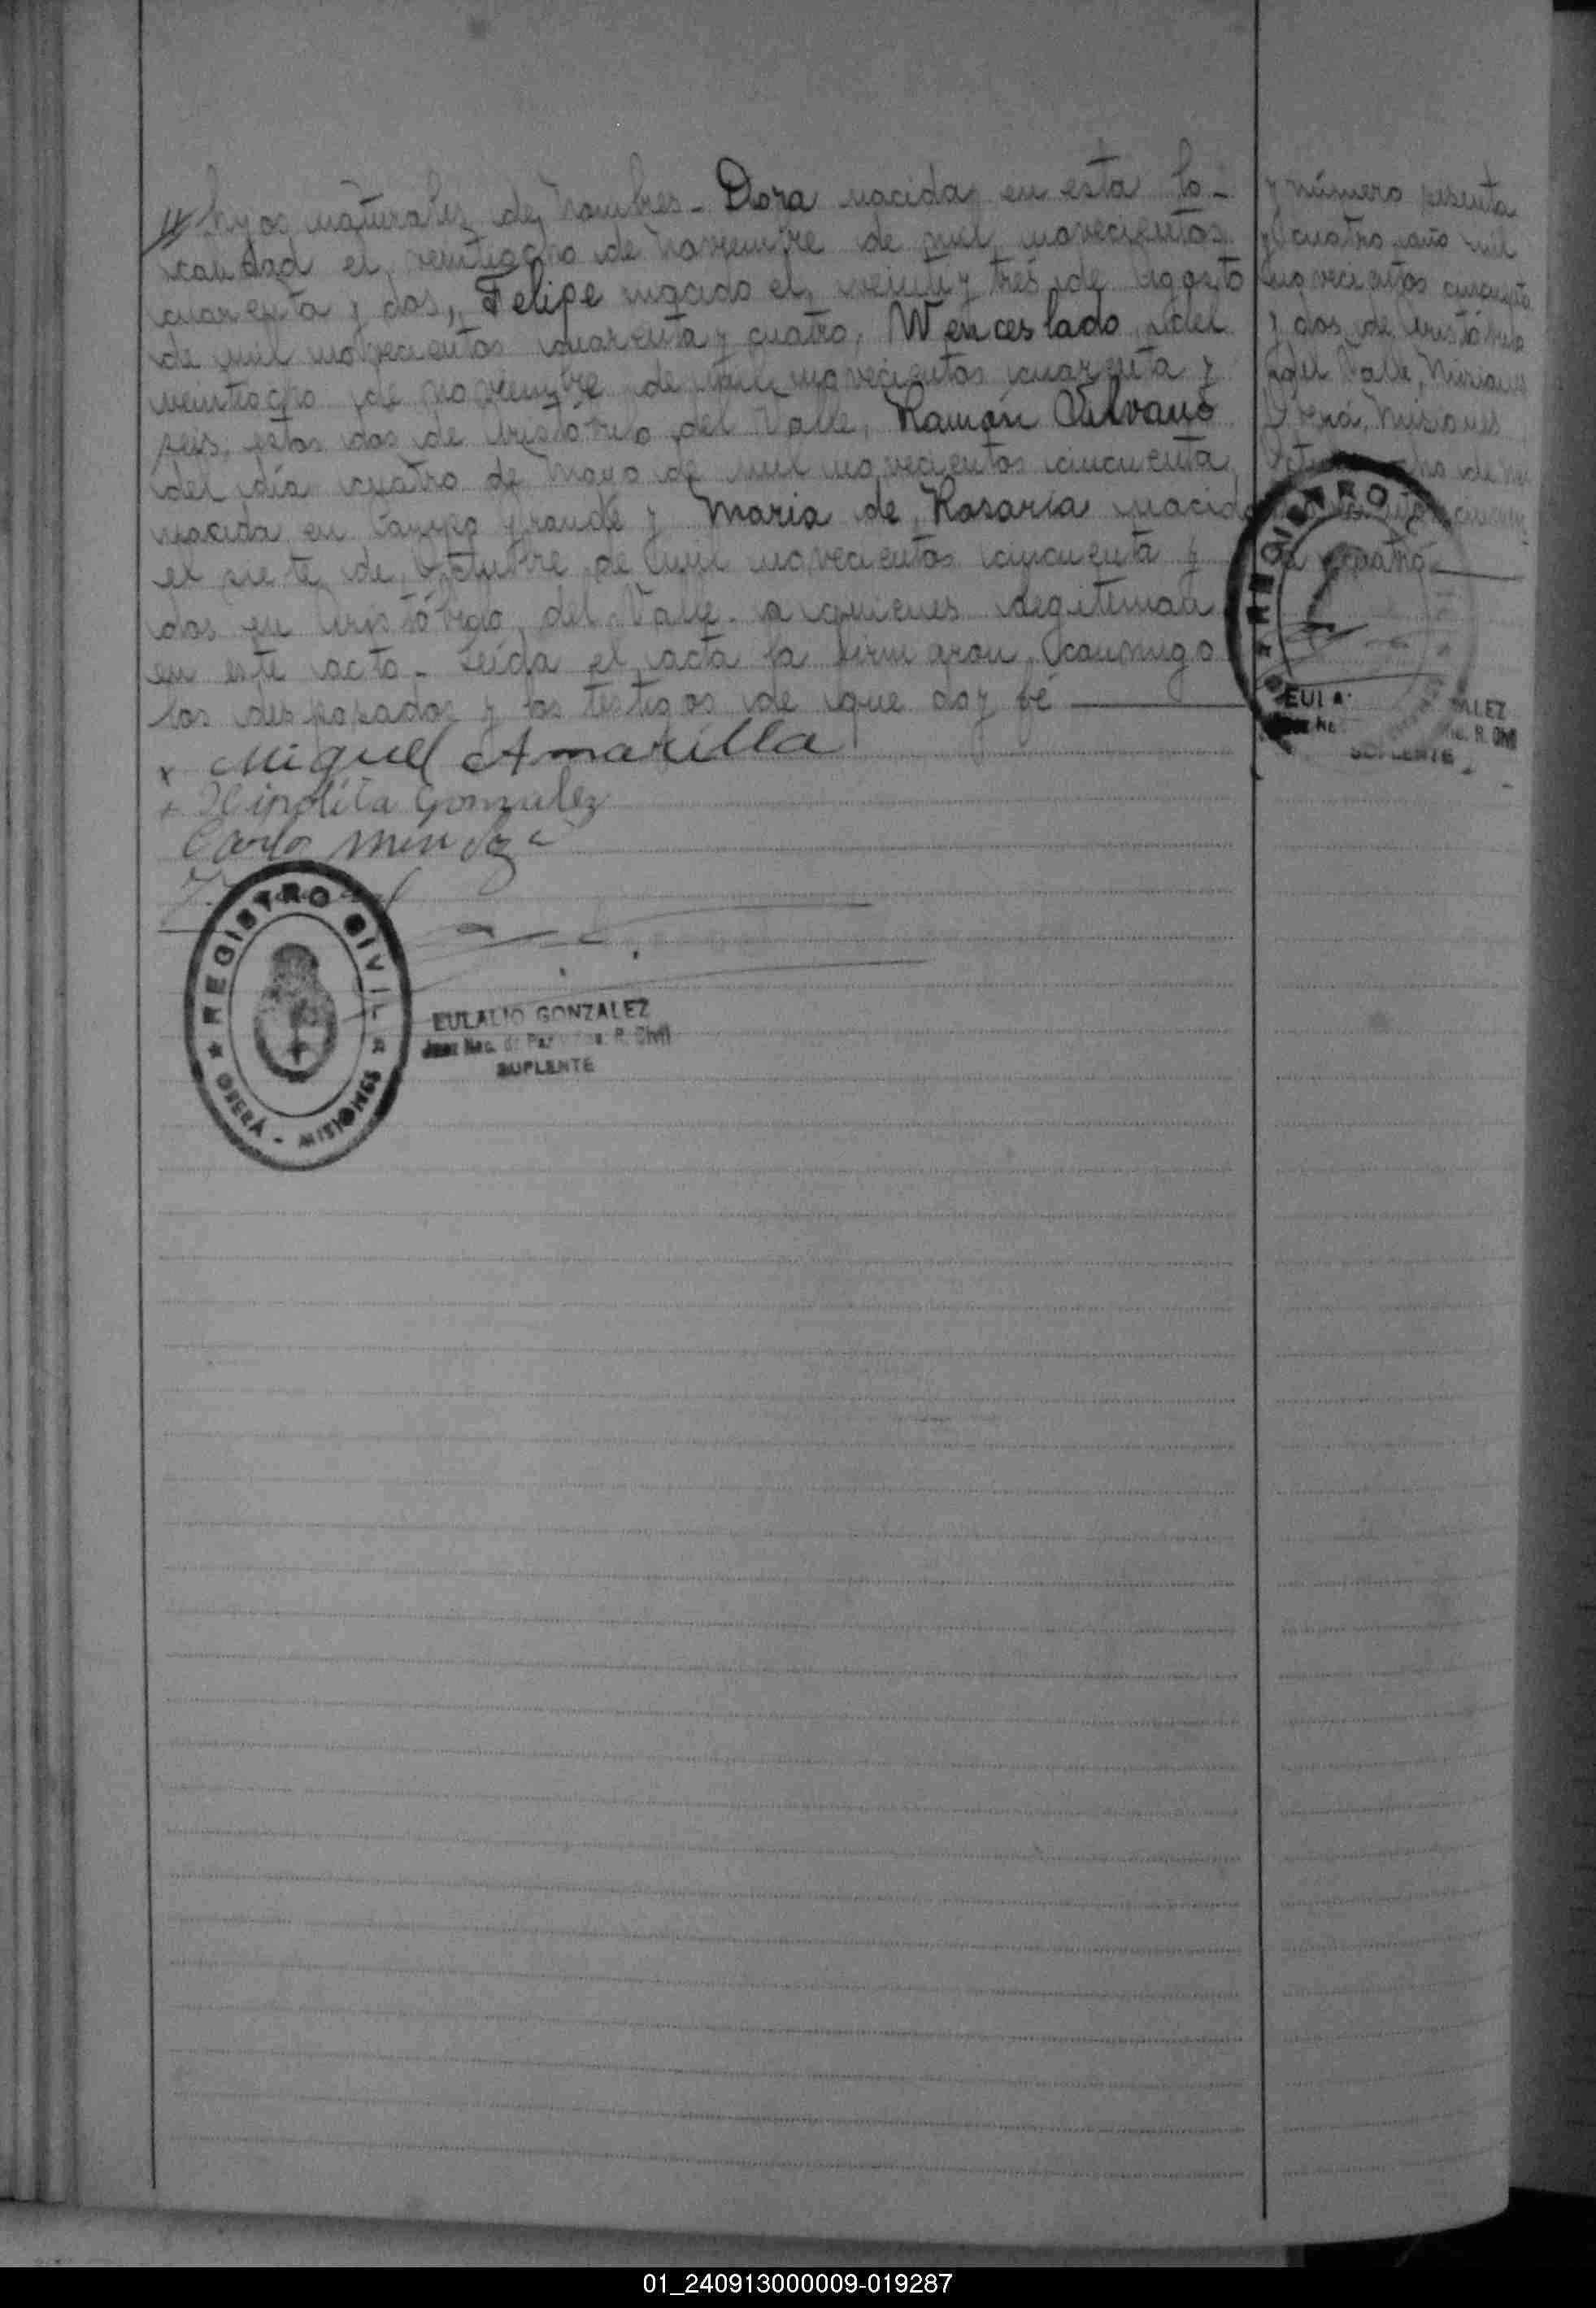 // hijos naturales de nombres - Dora nacida en esta lo-
calidad el veintiocho de noviembre de mil novecientos
cuarenta y dos, Felipe nacido el veinte y tres de Agosto
de mil novecientos cuarenta y cuatro, Wenceslado del
veintiocho de noviembre de mil novecientos cuarenta y
seis, estos dos de Aristóbulo del Valle, Ramón Silvano
del día cuatro de Mayo de mil novecientos cincuenta
nacida en Campo Grande y Maria de Rosaria nacida
el siete de Octubre de mil novecientos cincuenta y
dos en Aristóbulo del Valle - a quienes legitiman
en este acto - Leída el acta la firmaron conmigo
los desposados y los testigos de que doy fé
x Miguel Amarilla
+ Hipolita Gonzalez
Carlo Mendoza
REGISTRO CIVIL
OBERÁ - MISIONES
EULALIO GONZALEZ
Juez Nac. de Paz R. Civil
SUPLENTE
y número sesenta
y cuatro año mil
novecientos cincuenta
y dos de Aristóbulo
del Valle, Misiones
Oberá, Misiones
Octubre de
cuatro
REGISTRO
EULA ALEZ
R. Civil
SUPLENTE
01_240913000009-019287